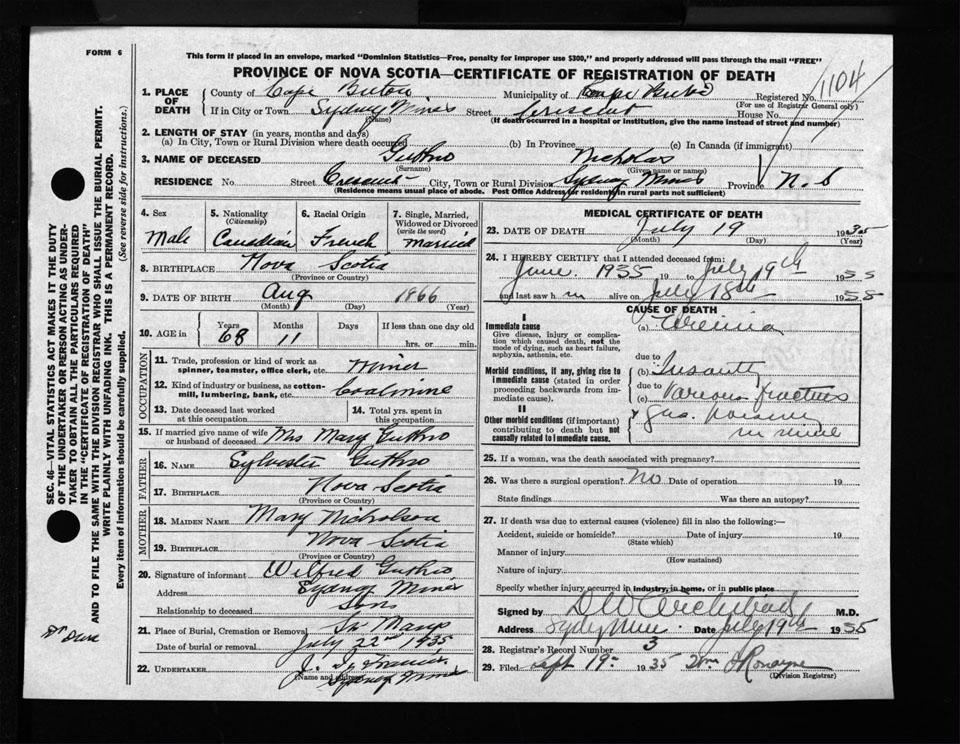 FORM 6
This form if placed in an envelope, marked "Dominion Statistics—Free, penalty for improper use $300," and properly addressed will pass through the mail "FREE"
PROVINCE OF NOVA SCOTIA—CERTIFICATE OF REGISTRATION OF DEATH
1104
1. PLACE OF DEATH
County of Cape Breton Municipality of Cape Breton Registered No.
(For use of Registrar General only)
If in City or Town Sydney Mines Street Crescent House No.
(Name) (If death occurred in a hospital or institution, give the name instead of street and number)
2. LENGTH OF STAY (in years, months and days)
(a) In City, Town or Rural Division where death occurred (b) In Province (c) In Canada (if immigrant)
3. NAME OF DECEASED Guthro Nicholas
(Surname) (Given name or names)
RESIDENCE No. Street Crescent City, Town or Rural Division Sydney Mines Province N. S
(Residence means usual place of abode. Post Office Address for residents in rural parts not sufficient)
4. Sex
Male
5. Nationality
(Citizenship)
Canadian
6. Racial Origin
French
7. Single, Married, Widowed or Divorced
(write the word)
Married
8. BIRTHPLACE Nova Scotia
(Province or Country)
9. DATE OF BIRTH Aug 1866
(Month) (Day) (Year)
10. AGE in
Years Months Days If less than one day old
68 11 hrs. or min.
OCCUPATION
11. Trade, profession or kind of work as
spinner, teamster, office clerk, etc. Miner
12. Kind of industry or business, as cotton-
mill, lumbering, bank, etc. Coal mine
13. Date deceased last worked
at this occupation
14. Total yrs. spent in
this occupation
15. If married give name of wife
or husband of deceased Mrs Mary Guthro
FATHER
16. NAME Sylvester Guthro
17. BIRTHPLACE Nova Scotia
(Province or Country)
MOTHER
18. MAIDEN NAME Mary Nicholson
19. BIRTHPLACE Nova Scotia
(Province or Country)
20. Signature of informant Wilfred Guthro
Address Sydney Mines
Relationship to deceased Son
21. Place of Burial, Cremation or Removal St Marys
Date of burial or removal July 22nd 1935
22. UNDERTAKER
(Name and address) Sydney Mines
MEDICAL CERTIFICATE OF DEATH
23. DATE OF DEATH July 19 1935
(Month) (Day) (Year)
24. I HEREBY CERTIFY that I attended deceased from:
June 1935 19 to July 19th 1935
and last saw him alive on July 18th 1935
CAUSE OF DEATH
I
Immediate cause
Give disease, injury or complication which caused death, not the mode of dying, such as heart failure, asphyxia, asthenia, etc.
(a) Uremia
due to
Morbid conditions, if any, giving rise to immediate cause (stated in order proceeding backwards from immediate cause).
(b) Insanity
due to
(c) Various fractures
II
Other morbid conditions (if important) contributing to death but not causally related to immediate cause.
& Gas
in mine
25. If a woman, was the death associated with pregnancy?
26. Was there a surgical operation? No Date of operation 19
State findings Was there an autopsy?
27. If death was due to external causes (violence) fill in also the following:—
Accident, suicide or homicide? Date of injury 19
(State which)
Manner of injury
(How sustained)
Nature of injury
Specify whether injury occurred in industry, in home, or in public place
Signed by M.D.
Address Sydney Mines Date July 19th 1935
28. Registrar's Record Number 3
29. Filed Sept 19 1935 Wm J Ronayne
(Division Registrar)
SEC. 46—VITAL STATISTICS ACT MAKES IT THE DUTY
OF THE UNDERTAKER OR PERSON ACTING AS UNDER-
TAKER TO OBTAIN ALL THE PARTICULARS REQUIRED
IN THE "CERTIFICATE OF REGISTRATION OF DEATH"
AND TO FILE THE SAME WITH THE DIVISION REGISTRAR WHO SHALL ISSUE THE BURIAL PERMIT.
WRITE PLAINLY WITH UNFADING INK. THIS IS A PERMANENT RECORD.
Every item of information should be carefully supplied. (See reverse side for instructions.)